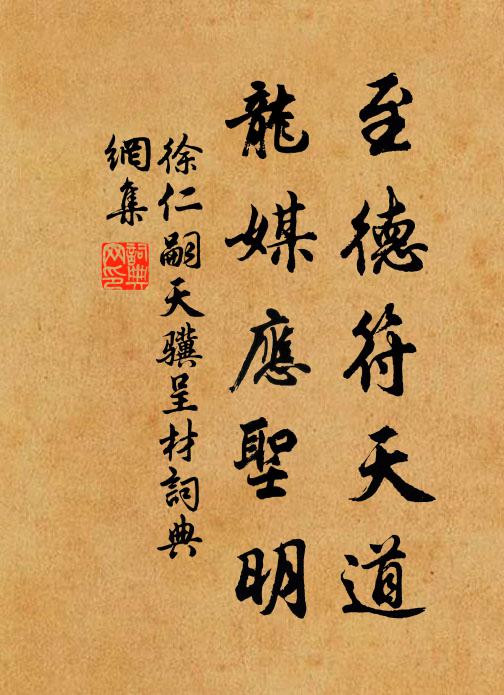 至德符天道
龍媒應聖明
徐仁嗣天驥呈材詞典
網集
詞典
网印